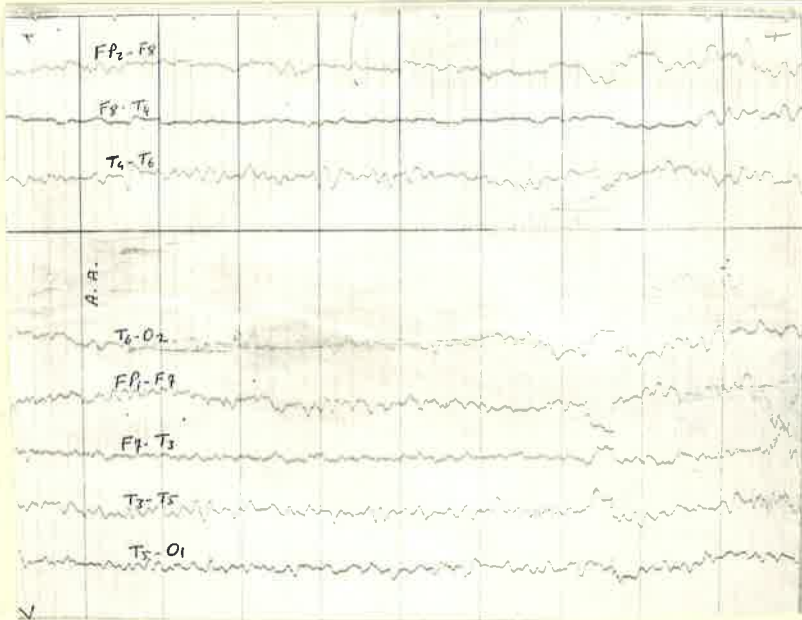 FP2-F8
F8-T4
T4-T6
A.A.
T6-O2
FP1-F7
F7-T3
T3-T5
T5-O1